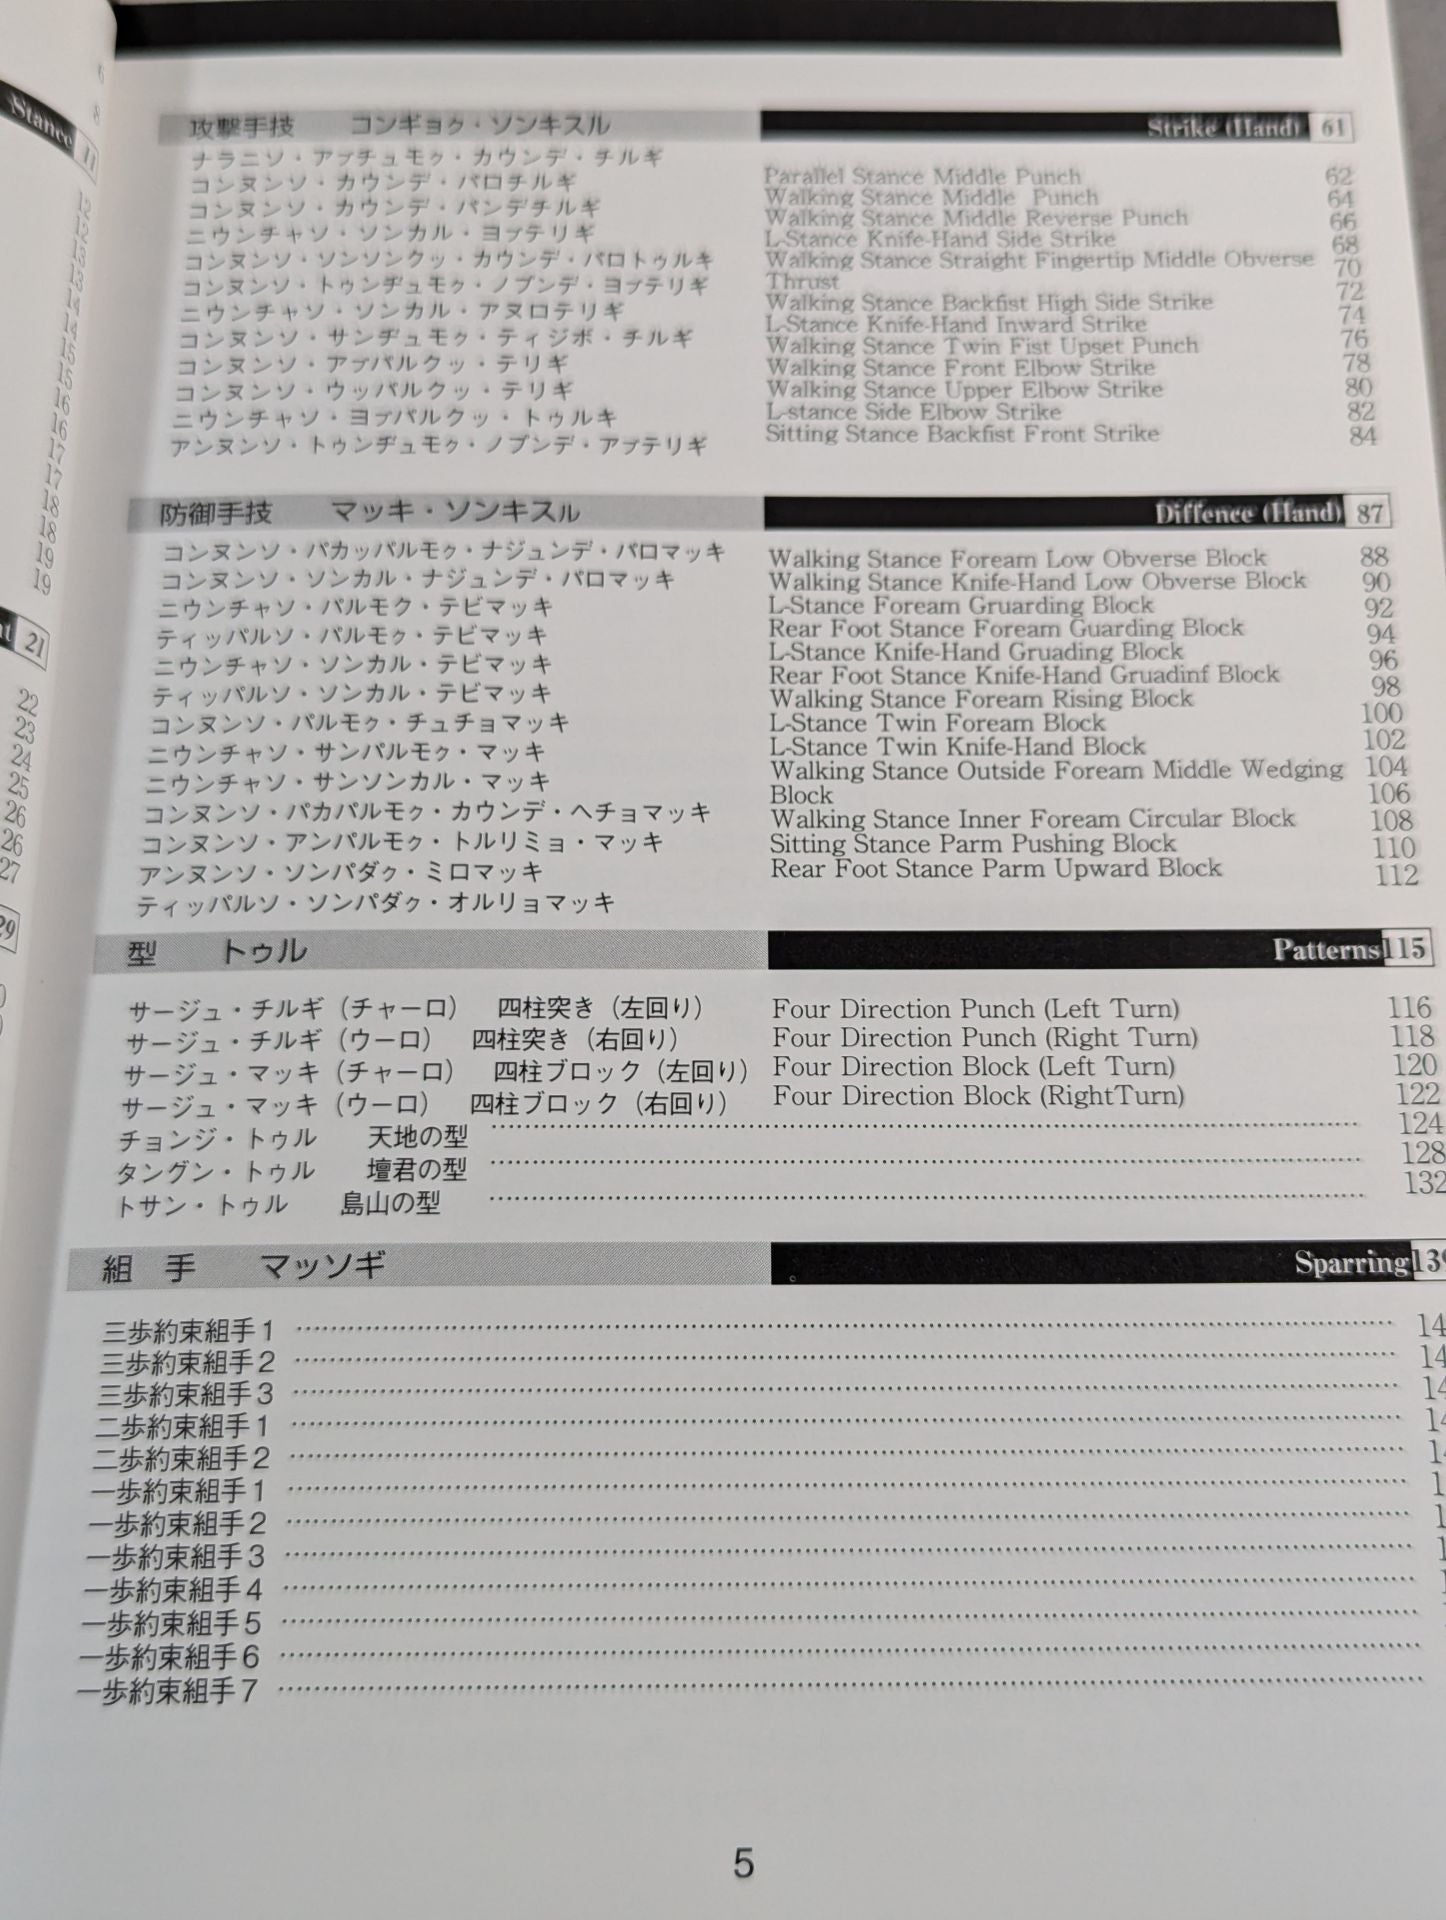 Stance 11
21
22
23
24
25
26
26
27
29
攻撃手技 コンギョㇰ・ソンキスル Strike (Hand) 61
ナラニソ・アㇷ゚チュモㇰ・カウンデ・チルギ
コンヌンソ・カウンデ・パロチルギ
コンヌンソ・カウンデ・パンデチルギ
ニウンチャソ・ソンカル・ヨㇷ゚テリギ
コンヌンソ・ソンソンクッ・カウンデ・パロトゥルキ
コンヌンソ・トゥンヂュモㇰ・ノプンデ・ヨㇷ゚テリギ
ニウンチャソ・ソンカル・アヌロテリギ
コンヌンソ・サンヂュモㇰ・ティジボ・チルギ
コンヌンソ・アㇷ゚パルクッ・テリギ
コンヌンソ・ウッパルクッ・テリギ
ニウンチャソ・ヨㇷ゚パルクッ・トゥルキ
アンヌンソ・トゥンヂュモㇰ・ノプンデ・アㇷ゚テリギ
Parallel Stance Middle Punch 62
Walking Stance Middle Punch 64
Walking Stance Middle Reverse Punch 66
L-Stance Knife-Hand Side Strike 68
Walking Stance Straight Fingertip Middle Obverse 70
Thrust 72
Walking Stance Backfist High Side Strike 74
L-Stance Knife-Hand Inward Strike 76
Walking Stance Twin Fist Upset Punch 78
Walking Stance Front Elbow Strike 80
Walking Stance Upper Elbow Strike 82
L-stance Side Elbow Strike 84
Sitting Stance Backfist Front Strike
防御手技 マッキ・ソンキスル Diffence (Hand) 87
コンヌンソ・パカッパルモㇰ・ナジュンデ・パロマッキ
コンヌンソ・ソンカル・ナジュンデ・パロマッキ
ニウンチャソ・パルモク・テビマッキ
ティッパルソ・パルモㇰ・テビマッキ
ニウンチャソ・ソンカル・テビマッキ
ティッパルソ・ソンカル・テビマッキ
コンヌンソ・パルモㇰ・チュチョマッキ
ニウンチャソ・サンパルモㇰ・マッキ
ニウンチャソ・サンソンカル・マッキ
コンヌンソ・パカパルモㇰ・カウンデ・ヘチョマッキ
コンヌンソ・アンパルモㇰ・トルリミョ・マッキ
アンヌンソ・ソンパダㇰ・ミロマッキ
ティッパルソ・ソンパダㇰ・オルリョマッキ
Walking Stance Foream Low Obverse Block 88
Walking Stance Knife-Hand Low Obverse Block 90
L-Stance Foream Gruarding Block 92
Rear Foot Stance Foream Guarding Block 94
L-Stance Knife-Hand Gruading Block 96
Rear Foot Stance Knife-Hand Gruadinf Block 98
Walking Stance Foream Rising Block 100
L-Stance Twin Foream Block 102
L-Stance Twin Knife-Hand Block 104
Walking Stance Outside Foream Middle Wedging 106
Block 108
Walking Stance Inner Foream Circular Block 110
Sitting Stance Parm Pushing Block 112
Rear Foot Stance Parm Upward Block
型 トゥル Patterns 115
サージュ・チルギ（チャーロ） 四柱突き（左回り） Four Direction Punch (Left Turn) 116
サージュ・チルギ（ウーロ） 四柱突き（右回り） Four Direction Punch (Right Turn) 118
サージュ・マッキ（チャーロ） 四柱ブロック（左回り） Four Direction Block (Left Turn) 120
サージュ・マッキ（ウーロ） 四柱ブロック（右回り） Four Direction Block (RightTurn) 122
チョンジ・トゥル 天地の型 124
タングン・トゥル 壇君の型 128
トサン・トゥル 島山の型 132
組 手 マッソギ Sparring
三歩約束組手1
三歩約束組手2
三歩約束組手3
二歩約束組手1
二歩約束組手2
一歩約束組手1
一歩約束組手2
一歩約束組手3
一歩約束組手4
一歩約束組手5
一歩約束組手6
一歩約束組手7
5